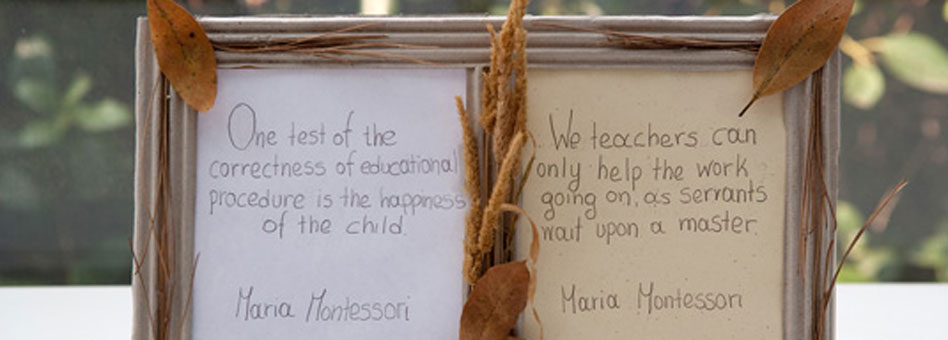 One test of the
correctness of educational
procedure is the happiness
of the child.
Maria Montessori
We teachers can
only help the work
going on, as servants
wait upon a master.
Maria Montessori